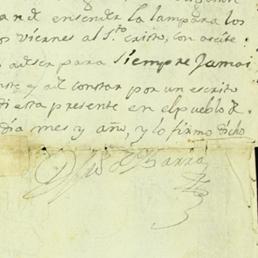 and encender la lampara los
s viernes al S.to cristo, con aseite
o a de ser para siempre Jamai
y al constar por un escrito
di esta presente en el pueblo d
dia mes y año, y lo firmo dicho
de Ibarra